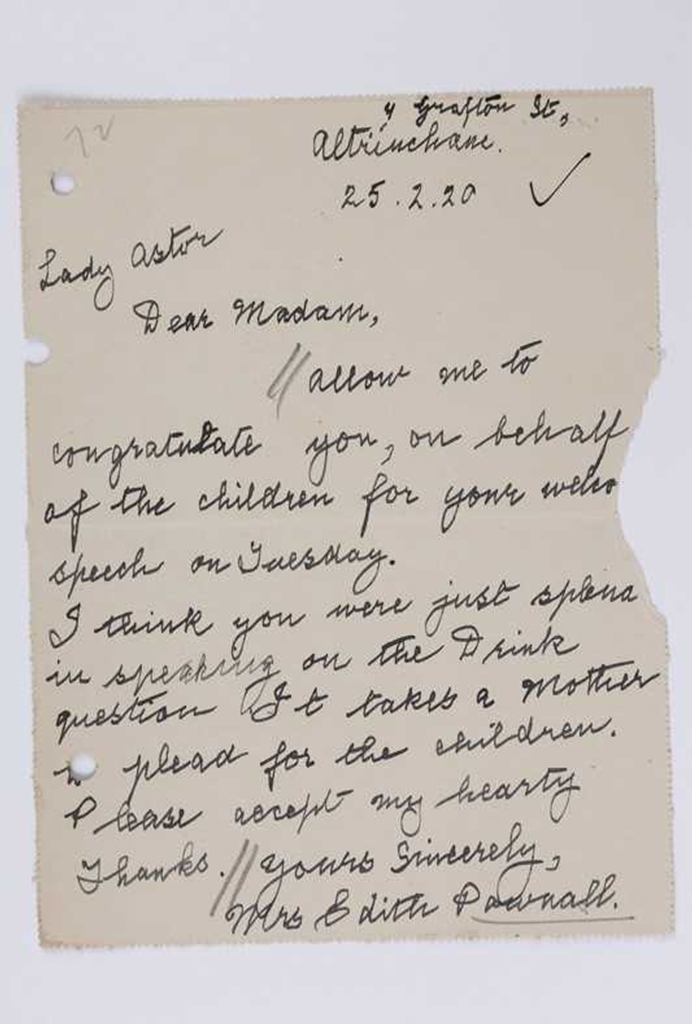 4 Grafton St,
Altrincham.
25.2.20
Lady Astor
Dear Madam,
Allow me to
congratulate you, on behalf
of the children for your
speech on Tuesday.
I think you were just
in speaking on the Drink
question It takes a Mother
plead for the children.
Please accept my hearty
Thanks. Yours Sincerely,
Mrs Edith Pownall.